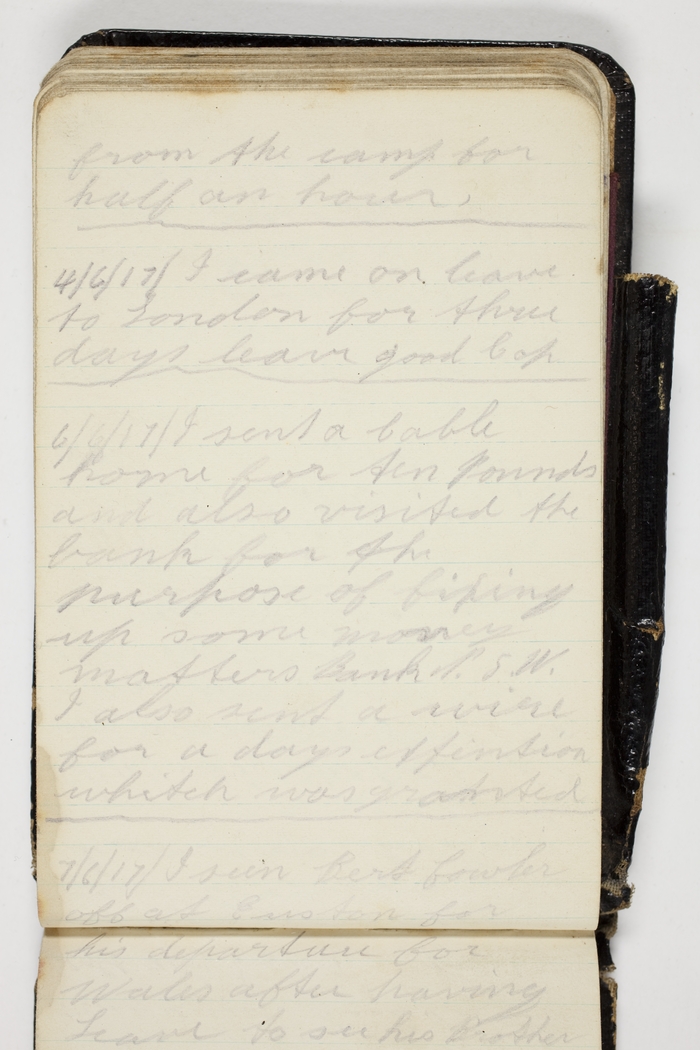 from the camp for
half an hour.
4/6/17/ I came on leave
to London for three
days leave good Cop
6/6/17/ I sent a Cable
home for ten Pounds
and also visited the
bank for the
purpose of fixing
up some money
matters Bank N. S. W.
I also sent a wire
for a days extention
whitch was granted
7/6/17/ I seen Bert Fowler
off at Euston for
his departure for
Wales after having
Leave to see his Brother